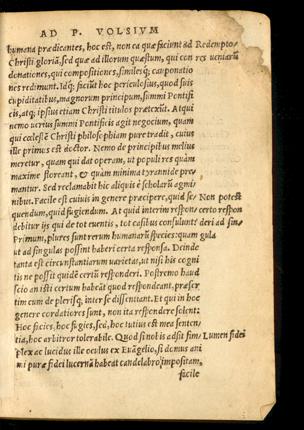 AD P. VOLSIVM
humana prædicantes, hoc est, non ea quæ faciunt ad Redemptores veniarũ
Christi gloriã, sed quæ ad illorum quæstum, qui con
donationes, qui compositiones, similesq; cauponatio
nes redimunt. Idq; faciũt hoc periculosius, quod suis
cupiditatibus, magnorum principum, summi Pontifi
cis, atq; ipsius etiam Christi titulos prætexũt. Atqui
nemo verius summi Pontificis agit negocium, quam
qui cœlestē Christi philosophiam pure tradit, cuius
ille primus est doctor. Nemo de principibus melius
meretur, quam qui dat operam, ut populi res quàm
maxime floreant, & quàm minima tyrannide pre
mantur. Sed reclamabit hic aliquis è scholarũ agmi
nibus. Facile est cuiuis in genere præcipere, quid se
quendum, quid fugiendum. At quid interim respon
debitur ijs qui de tot euentis, tot casibus consulunt?
Primum, plures sunt rerum humanarũ species: quam
ut ad singulas possint haberi certa responsa. Deinde
tanta est circunstantiarum uarietas, ut nisi his cogni
tis ne possit quidẽ certũ responderi. Postremo haud
scio an isti certum habeāt quod respondeant, præser
tim cum de plerisq; inter se dissentiant. Et qui in hoc
genere cordatiores sunt, non ita respondere solent:
Hoc facies, hoc fugies, sed, hoc tutius est mea senten
tia, hoc arbitror tolerabile. Quod si nobis adsit sim
plex ac lucidus ille oculus ex Euāgelio, si domus ani
mi puræ fidei lucernā habeat candelabro impositam,
facile
Non potest
certo respon
deri ad sin
gula
Lumen fidei